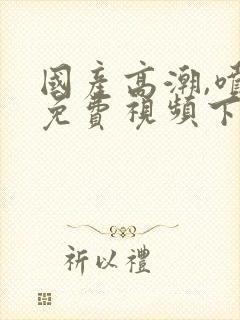 國產高潮,噴
免費視頻下
祈以禮